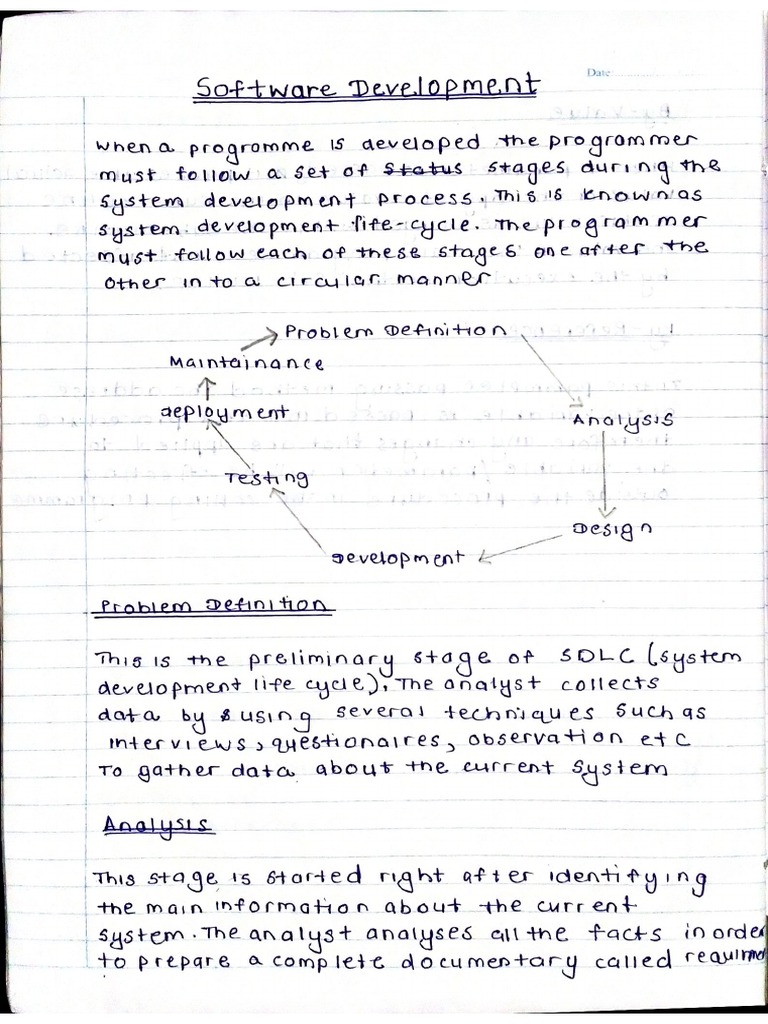 Date:
Software Development
when a programme is developed the programmer
must follow a set of Status stages during the
system development process. This is known as
system development life-cycle. The programmer
must follow each of these stages one after the
other in to a circular manner
Problem Definition
Maintainance
deployment
Analysis
Testing
Design
Development
Problem Definition
This is the preliminary stage of SDLC (system
development life cycle). The analyst collects
data by using several techniques such as
interviews, questionaires, observation etc
to gather data about the current system
Analysis
This stage is started right after identifying
the main information about the current
system. The analyst analyses all the facts in order
to prepare a complete documentary called